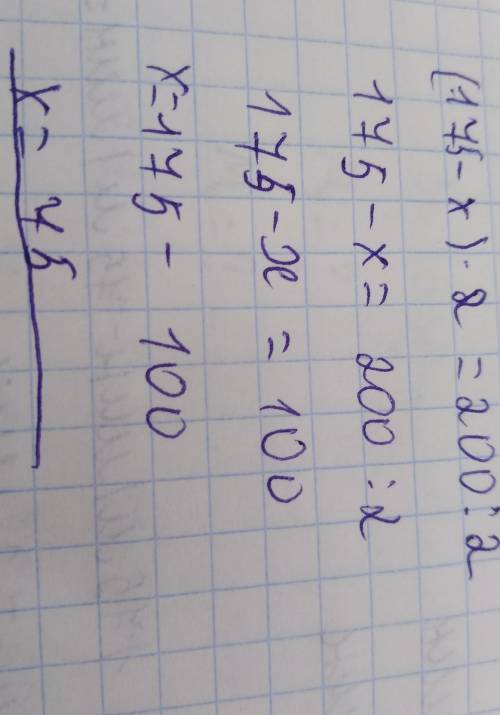 (175-x)·2=200:2
175-x=200:2
175-x=100
x=175-100
x=75